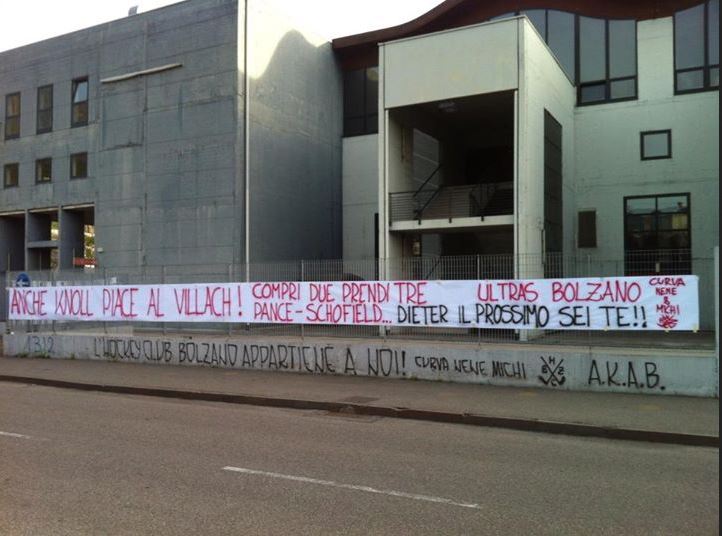 ANCHE KNOLL PIACE AL VILLACH!
COMPRI DUE PRENDI TRE
PANCE-SCHOFIELD... DIETER IL PROSSIMO SEI TE!!
ULTRAS BOLZANO
CURVA
NENE
&
MICHI
1312 L'HOCKEY CLUB BOLZANO APPARTIENE A NOI! CURVA NENE MICHI A.K.A.B.